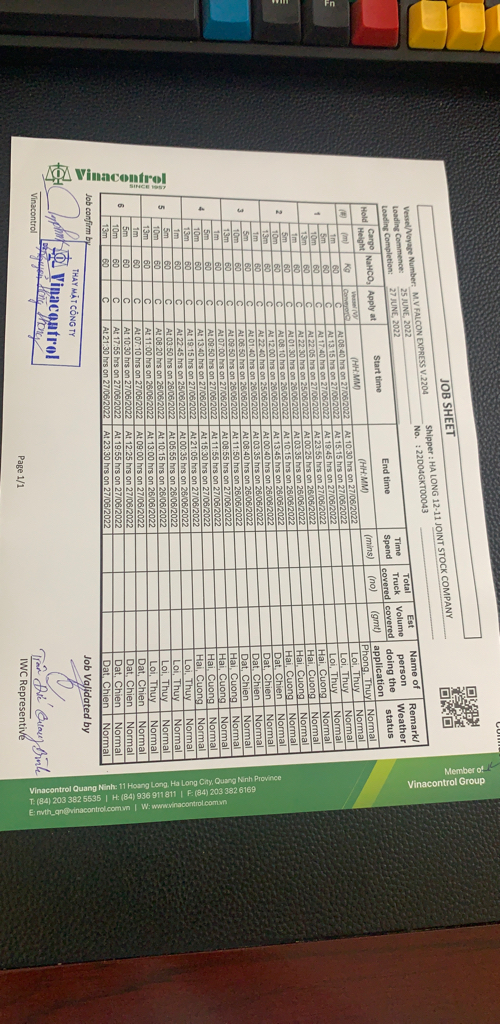 Vinacontrol
SINCE 1957
Member of
Vinacontrol Group
JOB SHEET
No. : 22D04GKT00043
Vessel/Voyage Number: M.V FALCON EXPRESS V.2204 Shipper: HA LONG 12-11 JOINT STOCK COMPANY
Loading Commence: 25 JUNE, 2022
Loading Completion: 27 JUNE, 2022
Hold Cargo Height NaHCO3 Apply at Start time End time Time Spend Total Truck covered Est Volume covered Name of person doing the application Remark/ Weather status
(#) (m) Kg Vessel (V)/ Container(C) (HH:MM) (HH:MM) (mins) (no) (gmt)
1 1m 60 C At 08:40 hrs on 27/06/2022 At 10:30 hrs on 27/06/2022 Phong, Thuy Normal
5m 60 C At 13:15 hrs on 27/06/2022 At 15:15 hrs on 27/06/2022 Loi, Thuy Normal
10m 60 C At 17:40 hrs on 27/06/2022 At 19:45 hrs on 27/06/2022 Loi, Thuy Normal
13m 60 C At 22:05 hrs on 27/06/2022 At 23:55 hrs on 27/06/2022 Loi, Thuy Normal
2 1m 60 C At 22:30 hrs on 25/06/2022 At 00:25 hrs on 26/06/2022 Hai, Cuong Normal
5m 60 C At 01:30 hrs on 26/06/2022 At 03:35 hrs on 26/06/2022 Hai, Cuong Normal
10m 60 C At 08:10 hrs on 26/06/2022 At 10:15 hrs on 26/06/2022 Hai, Cuong Normal
13m 60 C At 12:00 hrs on 26/06/2022 At 13:45 hrs on 26/06/2022 Hai, Cuong Normal
3 1m 60 C At 22:40 hrs on 26/06/2022 Dat, Chien Normal
5m 60 C At 01:40 hrs on 26/06/2022 At 03:35 hrs on 26/06/2022 Dat, Chien Normal
10m 60 C At 06:50 hrs on 26/06/2022 At 08:40 hrs on 26/06/2022 Dat, Chien Normal
13m 60 C At 09:50 hrs on 26/06/2022 At 11:50 hrs on 26/06/2022 Dat, Chien Normal
4 1m 60 C At 07:00 hrs on 27/06/2022 At 08:55 hrs on 27/06/2022 Hai, Cuong Normal
5m 60 C At 09:50 hrs on 27/06/2022 At 11:55 hrs on 27/06/2022 Hai, Cuong Normal
10m 60 C At 13:40 hrs on 27/06/2022 At 15:30 hrs on 27/06/2022 Hai, Cuong Normal
13m 60 C At 19:15 hrs on 27/06/2022 At 21:05 hrs on 27/06/2022 Hai, Cuong Normal
5 1m 60 C At 22:45 hrs on 25/06/2022 At 00:35 hrs on 26/06/2022 Loi, Thuy Normal
5m 60 C At 03:50 hrs on 26/06/2022 At 05:55 hrs on 26/06/2022 Loi, Thuy Normal
10m 60 C At 08:20 hrs on 26/06/2022 At 10:15 hrs on 26/06/2022 Loi, Thuy Normal
13m 60 C At 11:00 hrs on 26/06/2022 At 13:00 hrs on 26/06/2022 Loi, Thuy Normal
6 1m 60 C At 07:10 hrs on 27/06/2022 At 09:00 hrs on 27/06/2022 Dat, Chien Normal
5m 60 C At 10:30 hrs on 27/06/2022 At 12:25 hrs on 27/06/2022 Dat, Chien Normal
10m 60 C At 17:55 hrs on 27/06/2022 At 19:55 hrs on 27/06/2022 Dat, Chien Normal
13m 60 C At 21:30 hrs on 27/06/2022 At 23:30 hrs on 27/06/2022 Dat, Chien Normal
Job confirm by Job Validated by
THAY MẶT CÔNG TY
Vinacontrol
Vinacontrol IWC Representive
Page 1/1
Vinacontrol Quang Ninh: 11 Hoang Long, Ha Long City, Quang Ninh Province
T: (84) 203 382 5535 | H: (84) 936 911 811 | F: (84) 203 382 6169
E: nvth_qn@vinacontrol.com.vn | W: www.vinacontrol.com.vn
Win
Fn